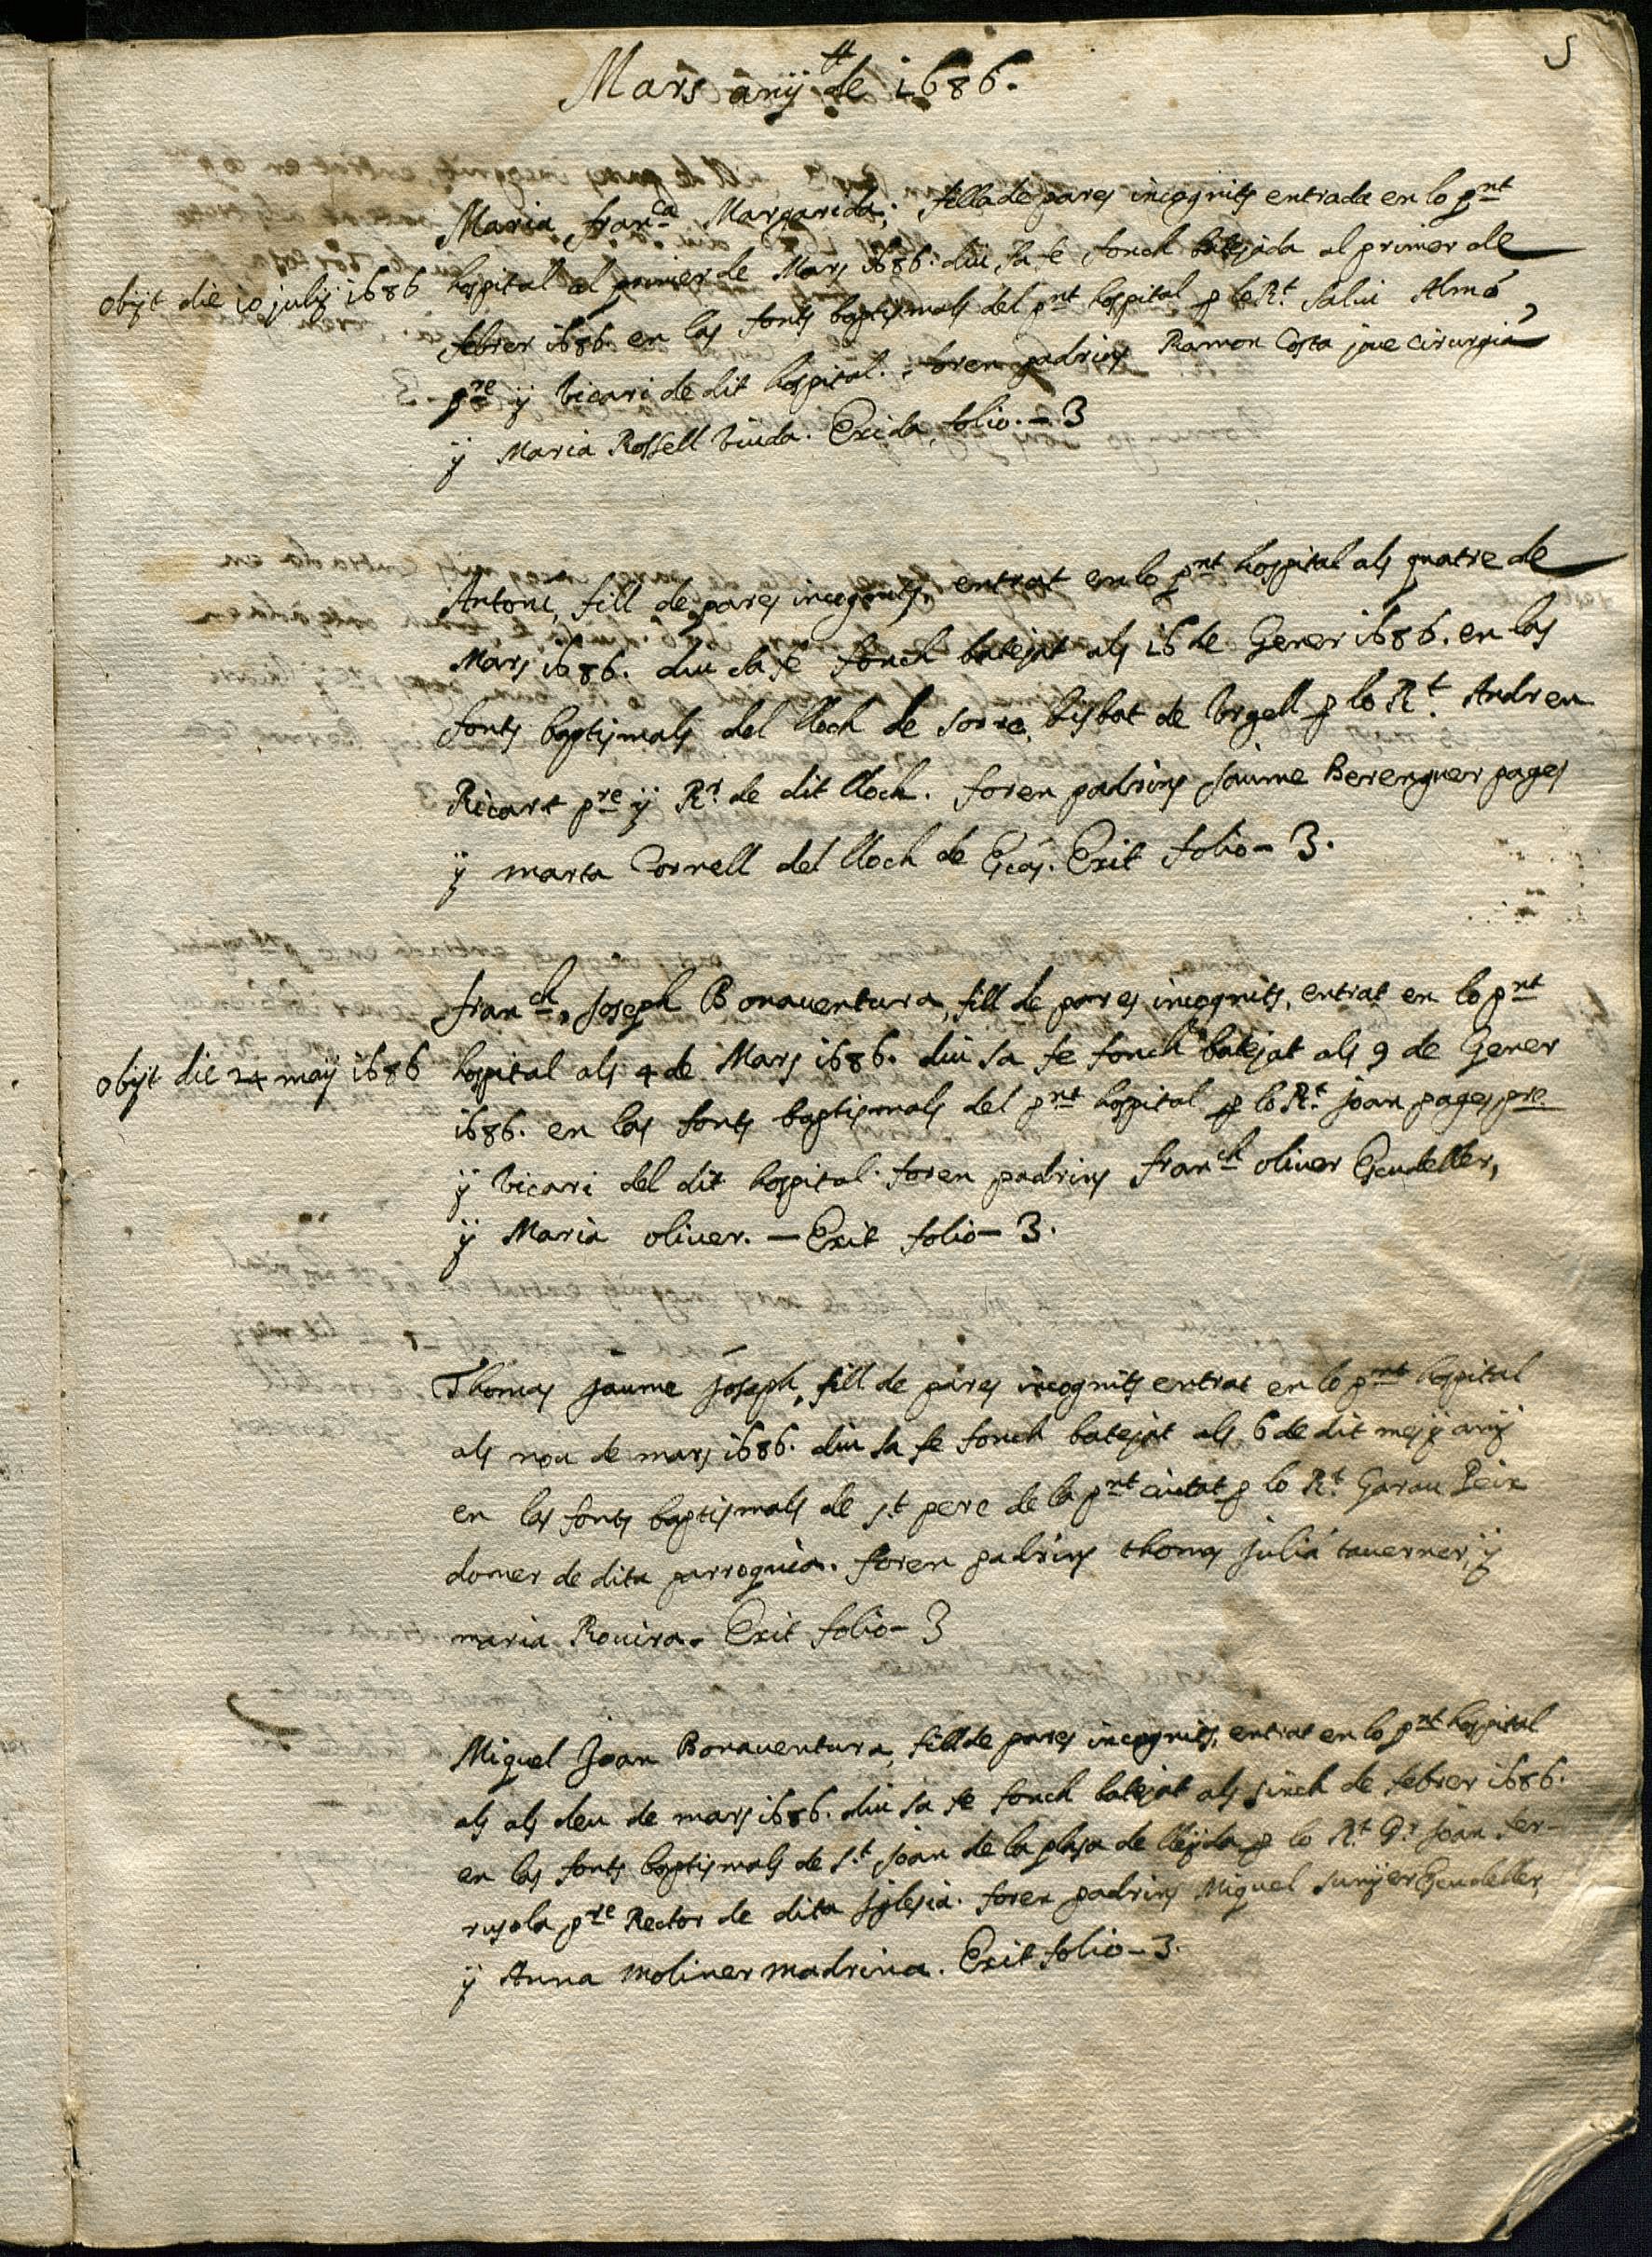 5
Mars anÿ de 1686.
Maria fran^ca Margarida, filla de pares incognits entrada en lo p^nt
obijt die 10 julÿ 1686
hospital al primer de Mars 1686. diu sa fe fonch batejada al primer de
febrer 1686. en las fonts baptismals del p^nt hospital p lo R^t Salui Almó
p^re ÿ Vicari de dit hospital. foren padrins Ramon Costa joue cirurgià
ÿ Maria Rossell Viuda. Exida folio - 3
Antoni, fill de pares incognits, entrat en lo p^nt hospital als quatre de
Mars 1686. diu sa fe fonch batejat als 16 de Gener 1686. en las
fonts baptismals del lloch de Sorre, bisbat de Vrgell p lo R^t Andreu
Ricart p^re ÿ R^r de dit lloch. foren padrins Jaume Berenguer pages
ÿ marta Cornell del lloch de Escós. Exit folio - 3.
fran^ch Joseph Bonauentura, fill de pares incognits, entrat en lo p^nt
obijt die 24 maÿ 1686
hospital als 4 de Mars 1686. diu sa fe fonch batejat als 9 de Gener
1686. en las fonts baptismals del p^nt hospital p lo R^t joan pages p^re
ÿ Vicari del dit hospital. foren padrins fran^ch oliuer Escudeller,
ÿ Maria oliuer. - Exit folio - 3.
Thomas jaume joseph, fill de pares incognits entrat en lo p^nt hospital
als nou de mars 1686. diu sa fe fonch batejat als 6 de dit mes ÿ anÿ
en las fonts baptismals de s^t pere de la p^nt ciutat p lo R^t Garau Peix
domer de dita parroquia. foren padrins thomas julià tauerner, ÿ
maria Rouira. Exit folio - 3
Miquel Joan Bonauentura, fill de pares incognits, entrat en lo p^nt hospital
als als deu de mars 1686. diu sa fe fonch batejat als sinch de febrer 1686.
en las fonts baptismals de S^t Joan de la plasa de lleÿda p lo R^t D^r Joan fer-
rusola p^re Rector de dita Iglesia. foren padrins Miquel Sunÿer Escudeller,
ÿ Anna moliner madrina. Exit folio - 3.